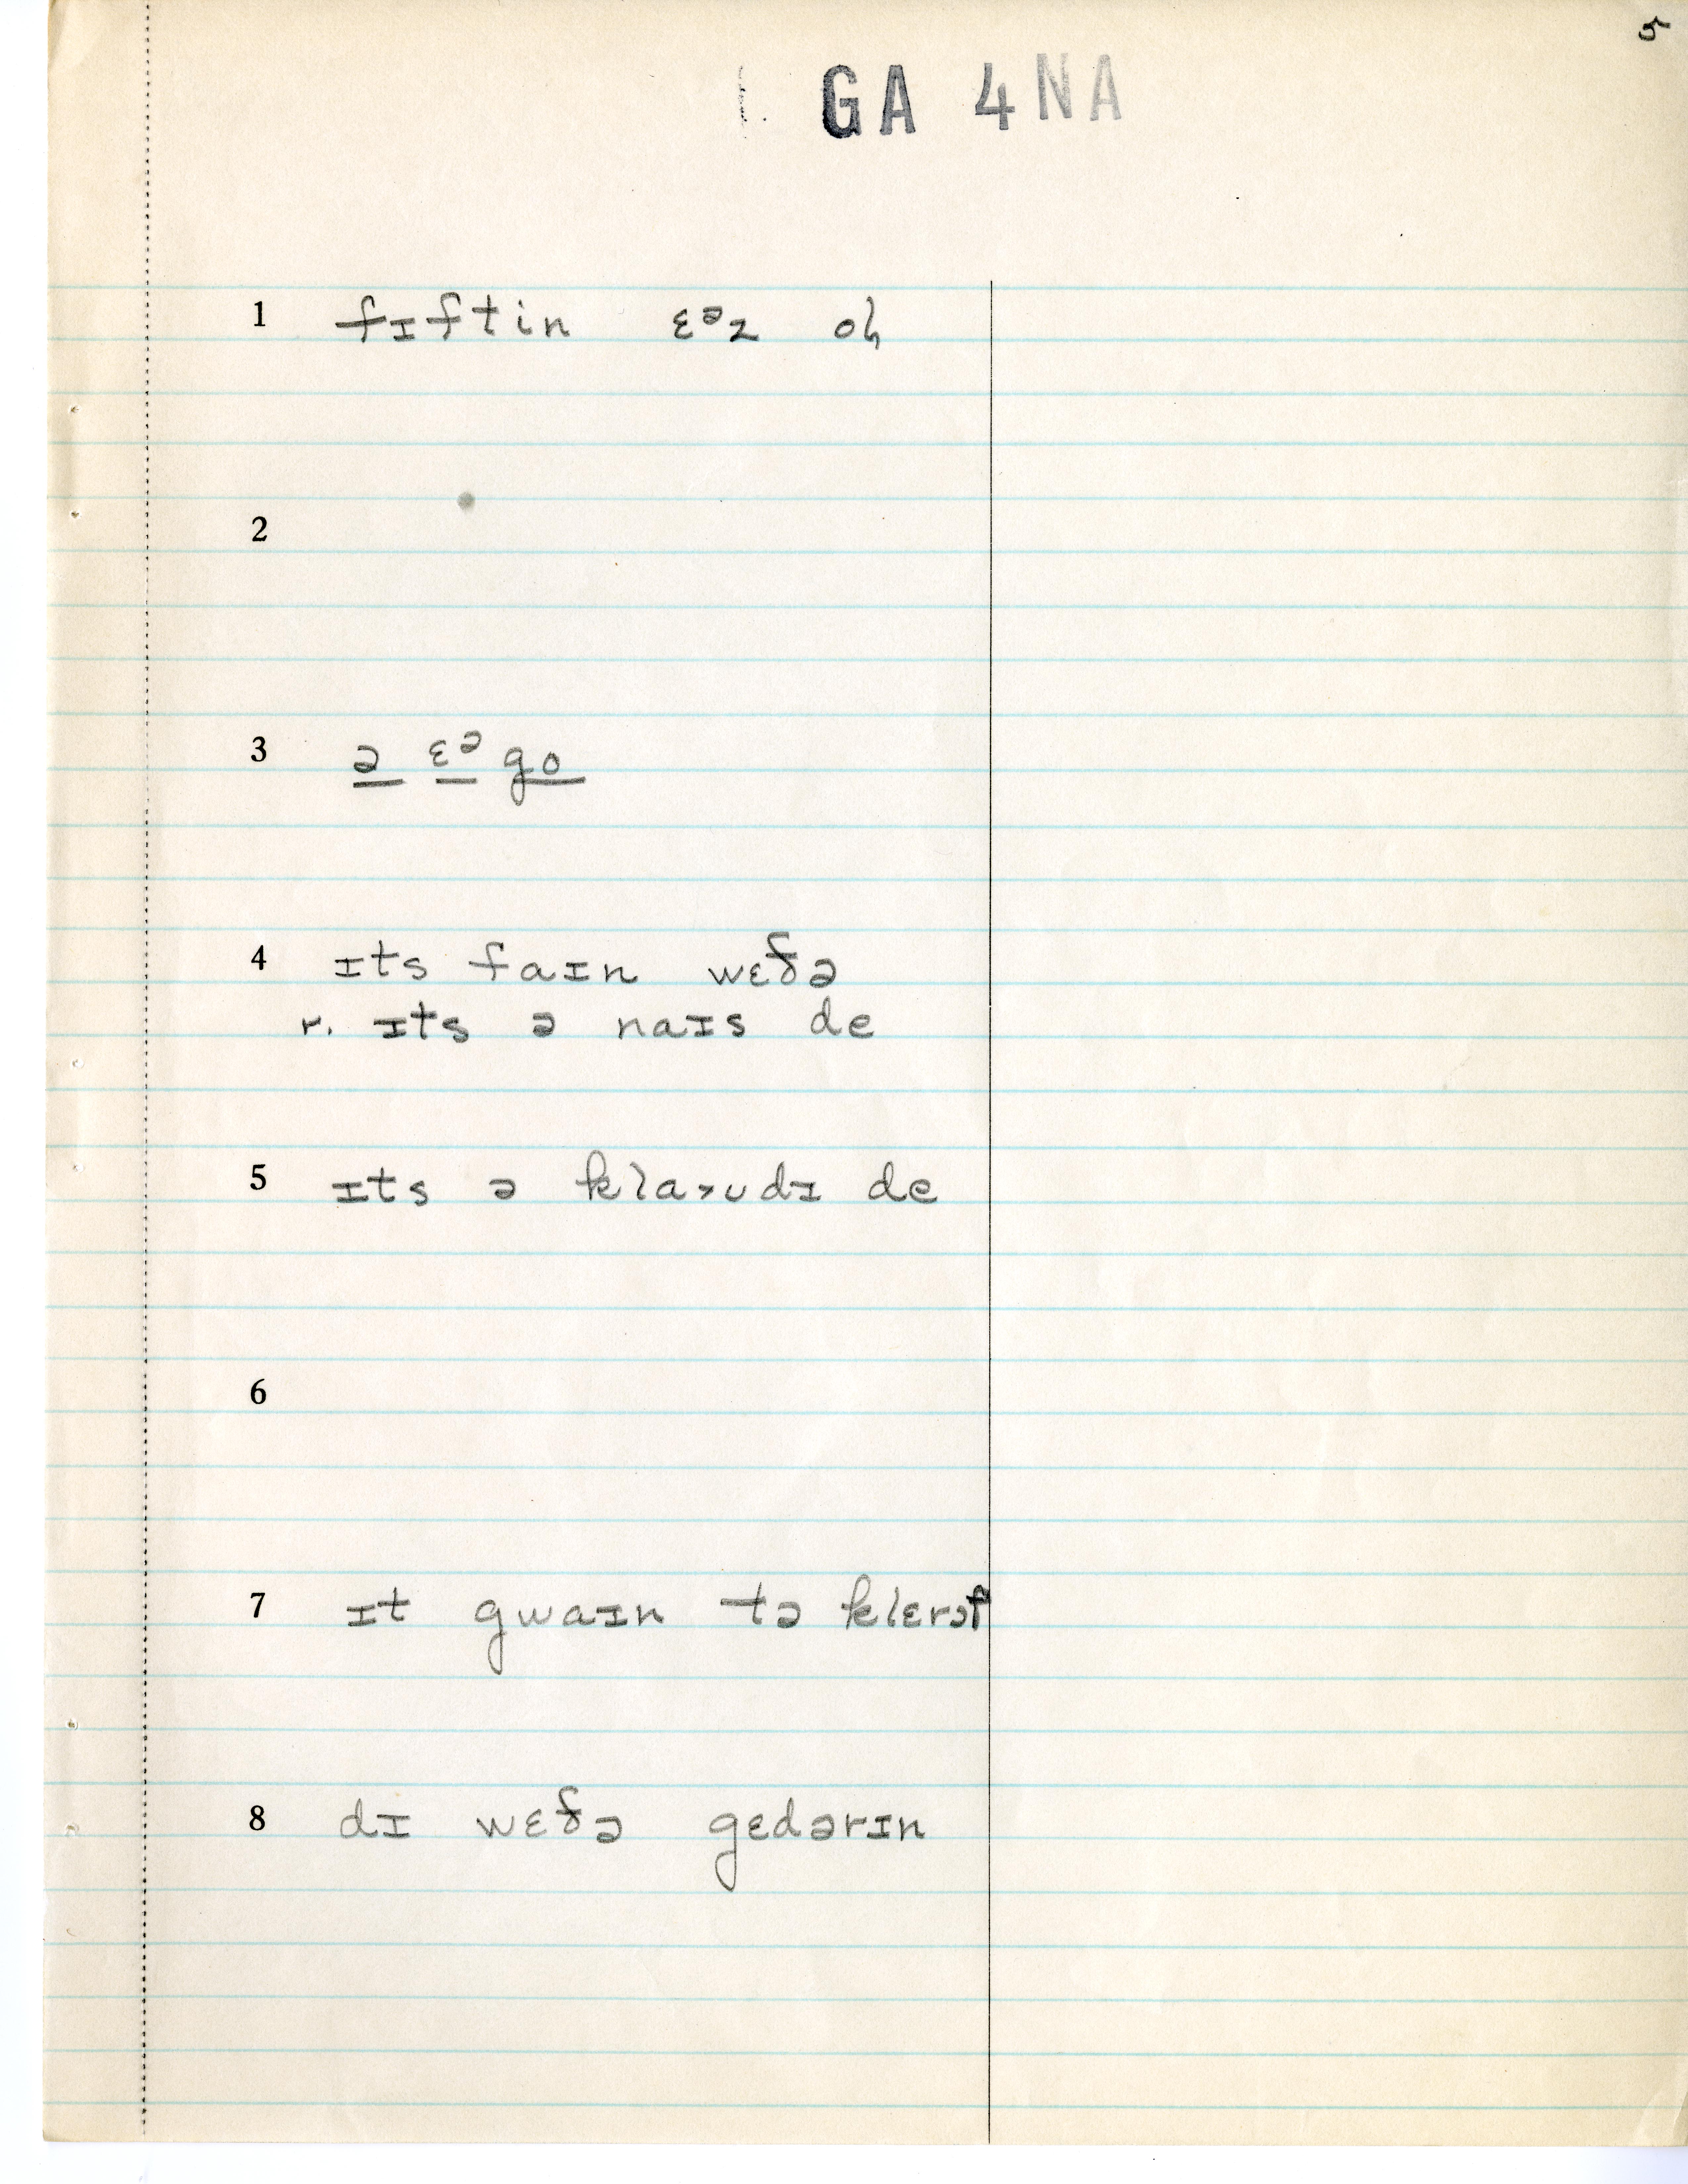 5
GA 4NA
1 fɪftin ɛᵊz
2
3 ə ɛᵊ go
4 ɪts faɪn wɛðə
r. ɪts ə naɪs de
5 ɪts ə kla˃ʊdɪ de
6
7 ɪt gwaɪn tə
8 dɪ wɛðə gɛdərɪn